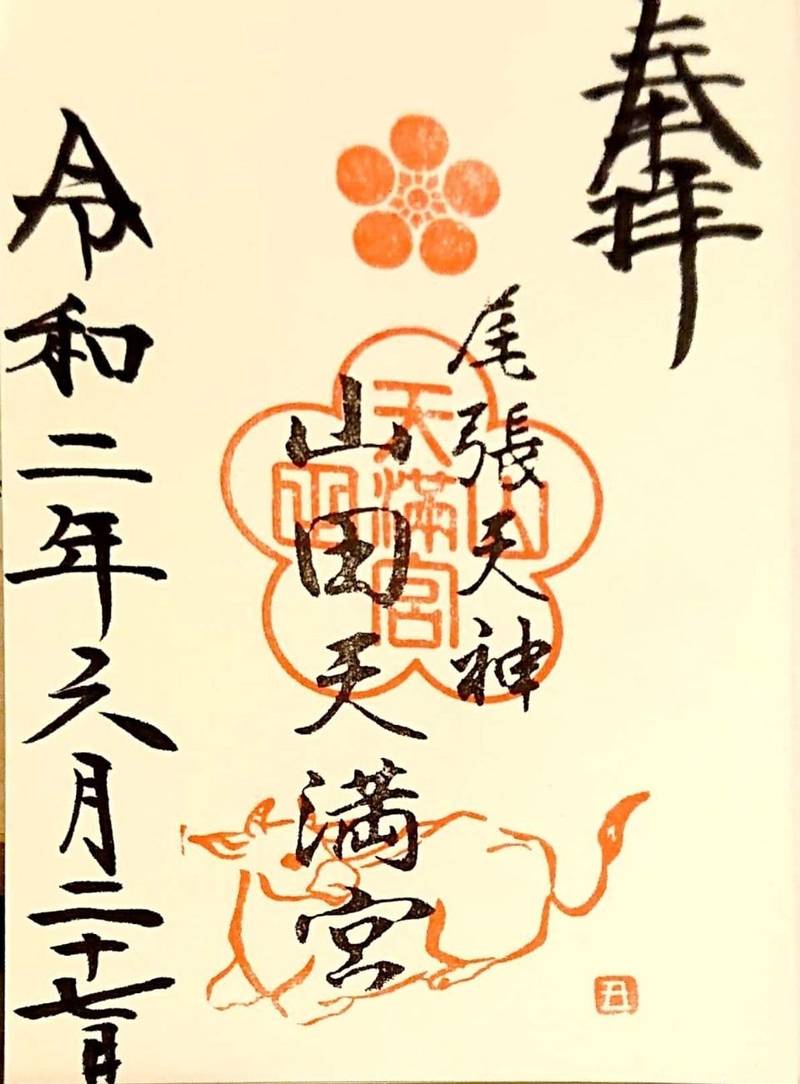 奉拝
尾張天神
山田天満宮
山田
天満宮
丑
令和二年六月二十七日